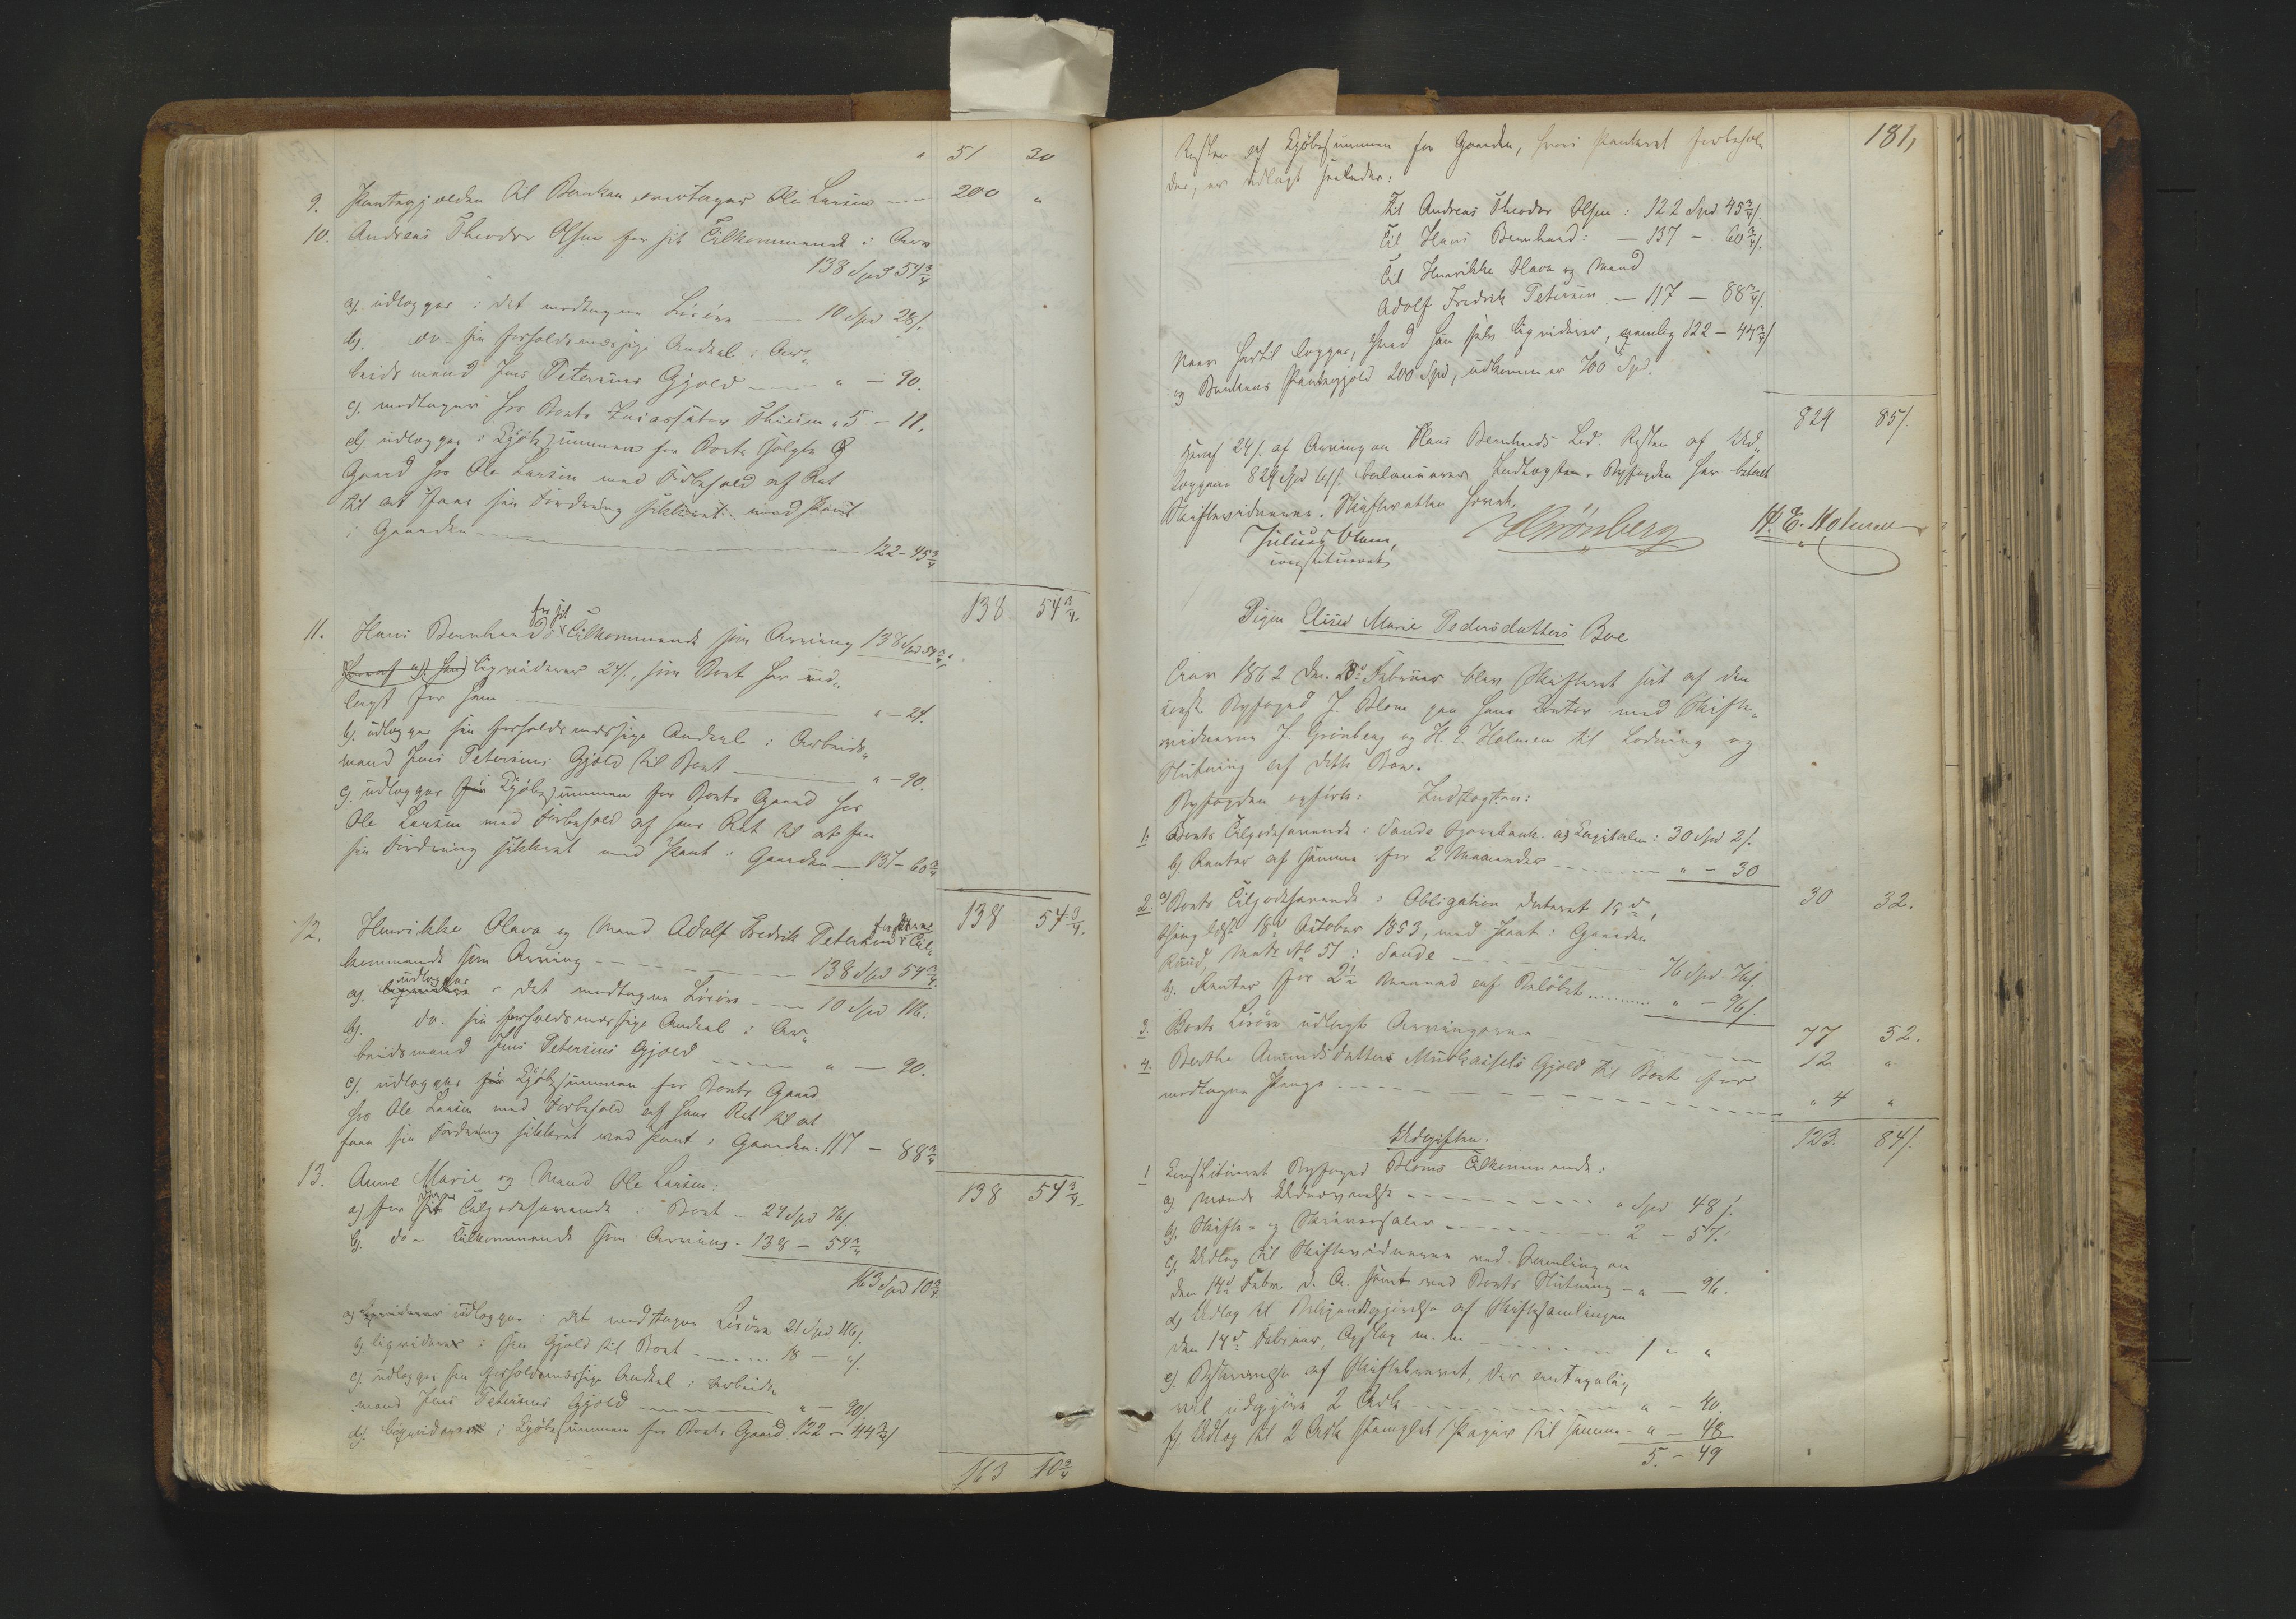 " 51 30
9. Pantegjælden til Banken overtager Ole Larsen 200 "
10. Andreas Theodor Olsen for sit Tilkommende i Arv
138 Spd 54 3/4
a). udlægges i det modtagne Løsøre 10 Spd 28 s.
b). do. sin forholdsmæssige Andeel i Ar-
beidsmand Jens Petersens Gjæld " — 90.
c). modtager hos Boets Incassator Thuesen " 5 — 11.
d) udlægges i Kjøbesummen for Boets solgte
Gaard hos Ole Larsen med Forbehold af Ret
til at faae sin Fordring sikkret med Pant
i Gaarden 122 - 45 3/4
138 54 3/4.
11. Hans Bernhard for sit Tilkommende som Arving 138 Spd 54 3/4
Heraf a). han liqviderer 24 s., som Boet har ud-
lagt for ham " — 24.
b). udlægges sin forholdsmæssige Andeel i Arbeids-
mand Jens Petersens Gjæld til Boet " — 90.
c). udlægges for Kjøbesummen for Boets Gaard hos
Ole Larsen med Forbehold af hans Ret til at faa
sin Fordring sikkret med Pant i Gaarden — 137 - 60 3/4
138 54 3/4.
12. Henrikke Olava og Mand Adolf Fredrik Petersen for deres Til-
kommende som Arving 138 Spd 54 3/4.
a). udlægges i det modtagne Løsøre 10 Spd 116.
b). do. sin forholdsmæssige Andeel i Ar-
beidsmand Jens Petersens Gjæld " — 90.
c). udlægges for Kjøbesummen for Boets Gaard
hos Ole Larsen med Forbehold af hans Ret til at
faae sin Fordring sikkret med Pant i Gaarden: 117 — 88 3/4
138 54 3/4.
13. Anne Marie og Mand Ole Larsen:
a) for deres Tilgodehavende i Boet — 24 Spd 76 s.
b). do — Tilkommende som Arving — 138 — 54 3/4
163 Spd 10 3/4
a) liqviderer udlægges i det modtagne Løsøre 21 Spd 116 s.
b) liqviderer i sin Gjæld til Boet 18 — " s.
c). udlægges sin forholdsmæssige Andeel i Arbeids-
mand Jens Petersens Gjæld " — 90 s.
d). liqviderer i Kjøbesummen for Boets Gaard 122 — 44 3/4 s
163 10 3/4
181,
Resten af Kjøbesummen for Gaarden, hvori Panteret forbehol-
des, er udlagt saaledes:
Til Andreas Theodor Olsen: 122 Spd 45 3/4 s.
Til Hans Bernhard: — 137 — 60 3/4 s.
Til Henrikke Olava og Mand
Adolf Fredrik Petersen — 117 — 88 3/4 s.
Naar hertil lægges, hvad han selv liqviderer, nemlig 122 — 44 3/4 s
og Bankens Pantegjæld 200 Spd, udkommer 700 Spd.
829 85 s.
Heraf 24 s. af Arvingen Hans Bernhards Lod. Resten af Ud-
læggene 829 Spd 61 s. balancerer Indtægten. Byfogden har betalt
Skiftevidnerne. Skifteretten hævet.
Julius Blom, Grönberg H. E. Holmen
constitueret
Pigen Elise Marie Pedersdatters Boe
Aar 1862 den 28de Februar blev Skifteret sat af den
const. Byfoged J. Blom paa hans Contor med Skifte-
vidnerne J. Grönberg og H. E. Holmen til Lodning og
Slutning af dette Boe.
Byfogden opførte: Indtægten:
1. Boets Tilgodehavende i Sande Sparebank. a) Capitalen: 30 Spd 2 s.
b) Renter af samme for 2 Maaneder " — 30
30 32.
2. a) Boets Tilgodehavende i Obligation dateret 15de,
thinglæst 18de October 1853, med Pant i Gaarden
Ruud Matr. No 51 i Sande 76 Spd 76 s.
b). Renter for 2 1/2 Maaned af Beløbet " — 96 s.
77 52.
3. Boets Løsøre udlagt Arvingerne 12 "
4. Berthe Amundsdatters Gjæld til Boet for
modtagne Penge " 4 "
123. 84 s.
Udgiften.
1 Constitueret Byfoged Bloms Tilkommende:
a). Mænds Udnævnelse " Spd 48 s.
b). Skifte- og Skriversalær 2 — 57.
c). Udlæg til Skiftevidnerne ved Samlingen
den 14de Febr. d. A. samt ved Boets Slutning — " — 96.
d) Udlæg til Bekjendtgjørelse af Skiftesamlingen
den 14de Februar, Opslag m. m. 1 " "
e). Beskrivelse af Skiftebrevet, der antagelig
vil udgjøre 2 Ark " — 40.
f). Udlæg til 2 Ark stemplet Papir til samme — " — 48
5. — 49